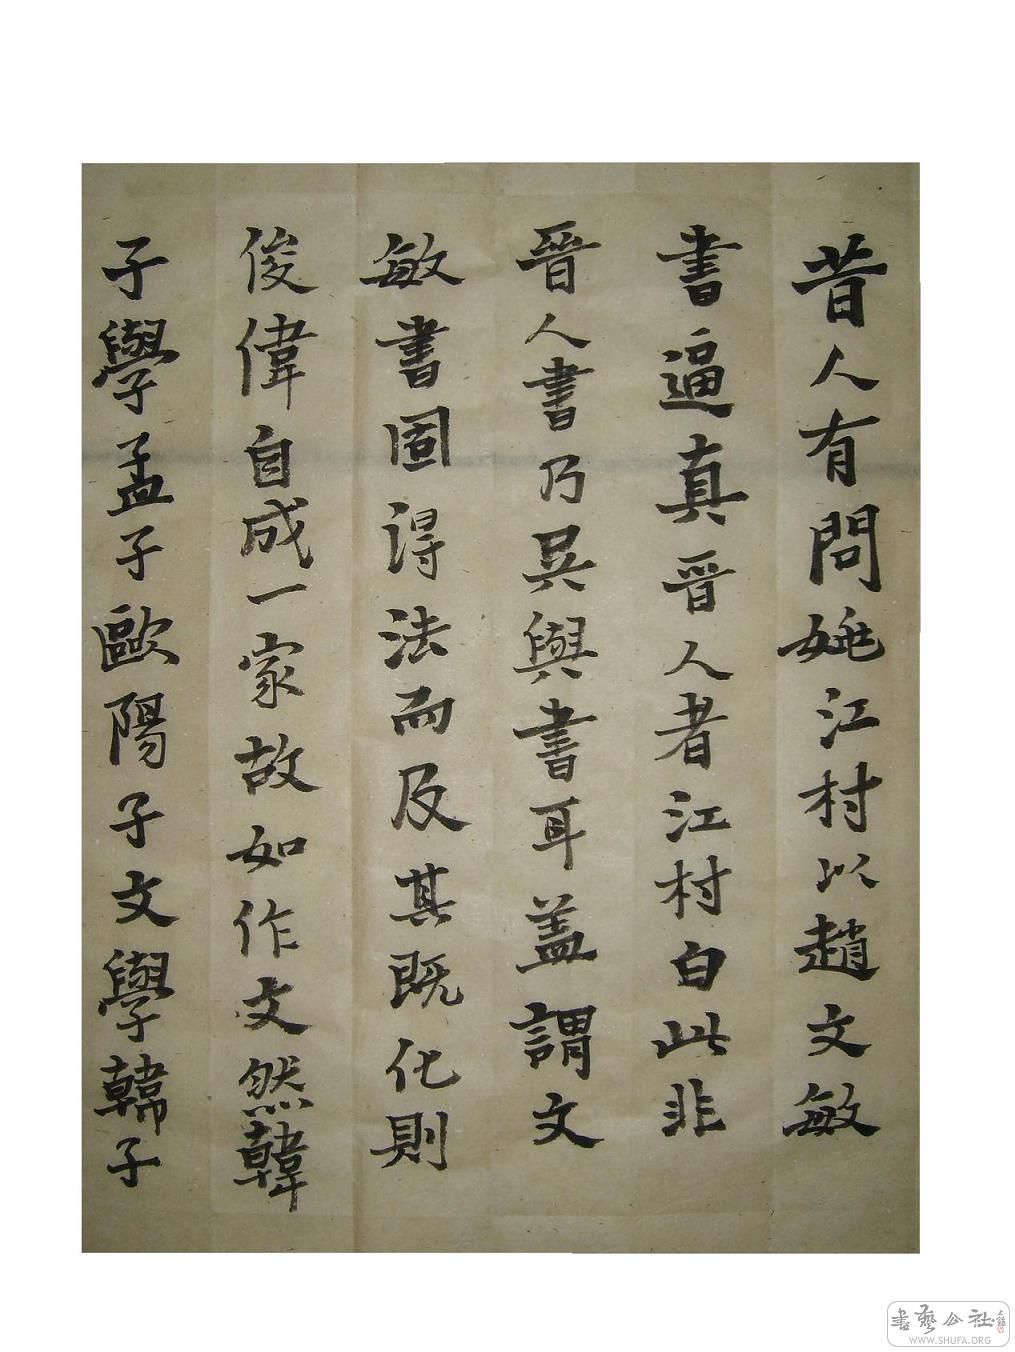 昔人有問姚江村以趙文敏
書逼真晉人者江村白此非
晉人書乃吳興書耳盖謂文
敏書固得法而及其既化則
俊偉自成一家故如作文然韓
子學孟子歐陽子文學韓子
書藝公社
WWW.SHUFA.ORG